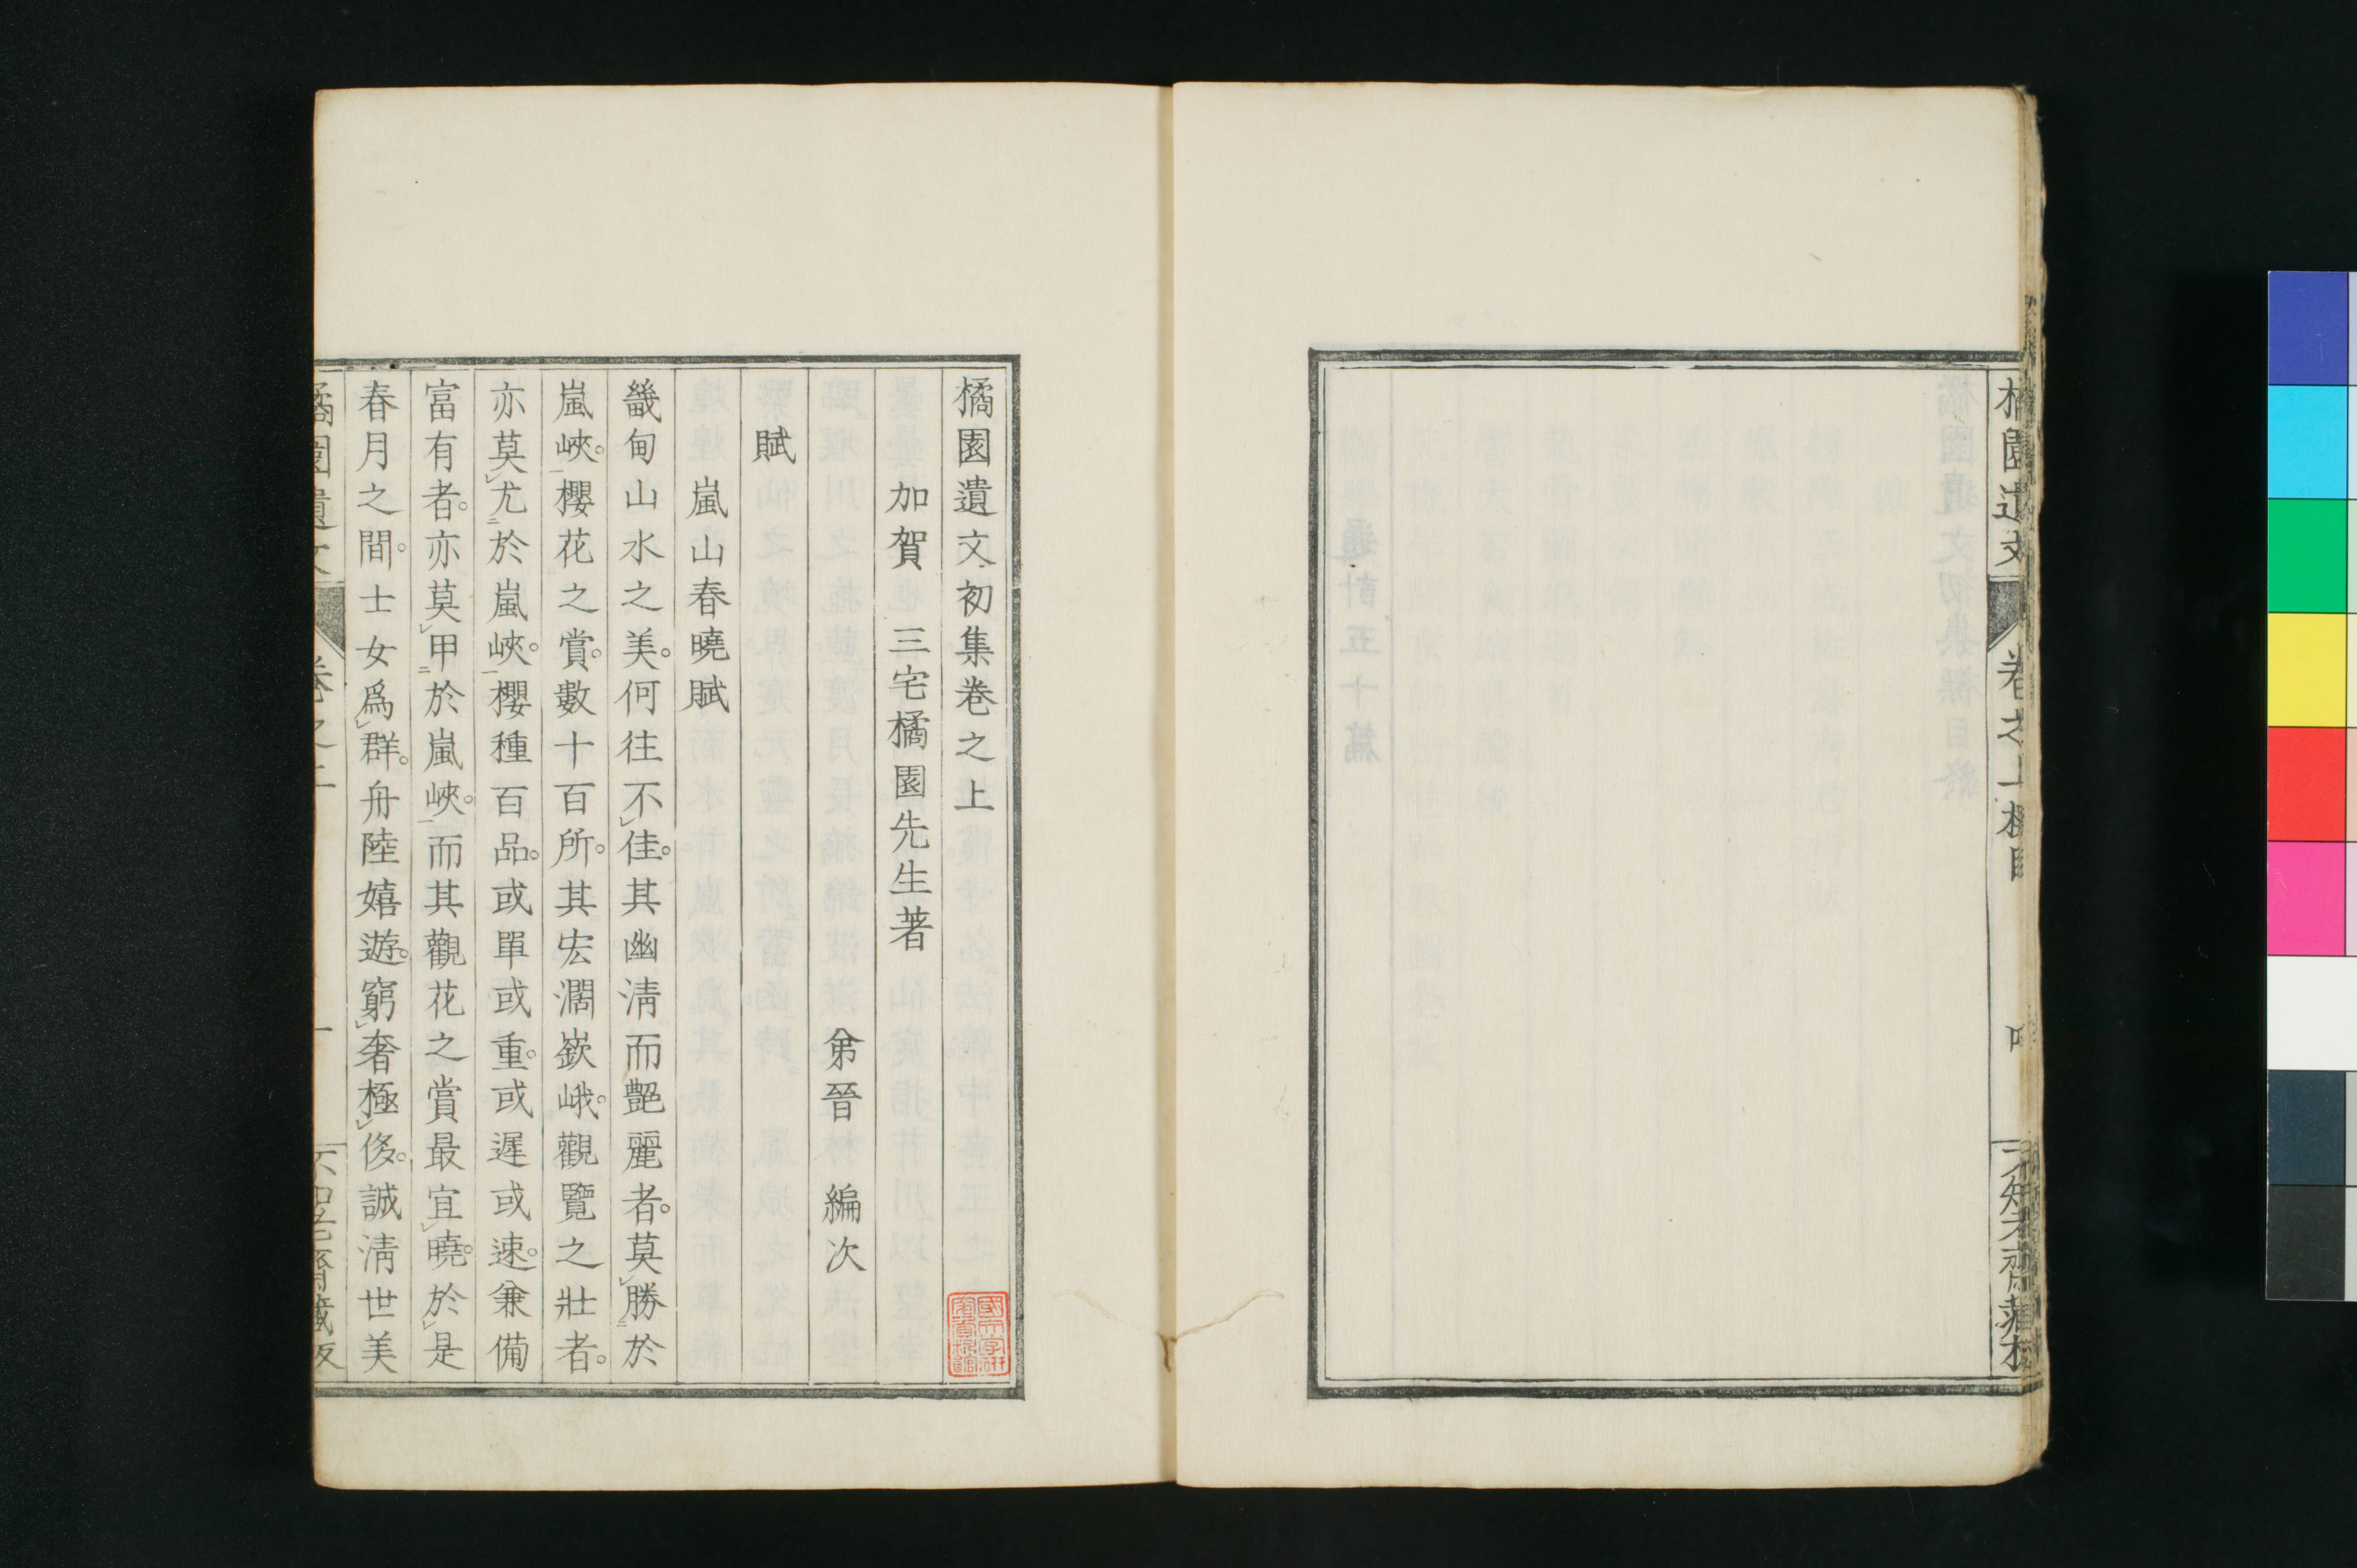 橘園遺文初集卷之上
加賀 三宅橘園先生著
弟晉 編次
賦
嵐山春曉賦
畿甸山水之美。何往不佳。其幽淸而艷麗者。莫勝於
嵐峽。櫻花之賞。數十百所。其宏濶嶔峨。觀覽之壯者。
亦莫尤於嵐峽。櫻種百品。或單或重。或遲或速。兼備
富有者。亦莫甲於嵐峽。而其觀花之賞最宜曉。於是
春月之間。士女爲群。舟陸嬉遊。窮奢極侈。誠淸世美
橘園遺文 卷之上 一